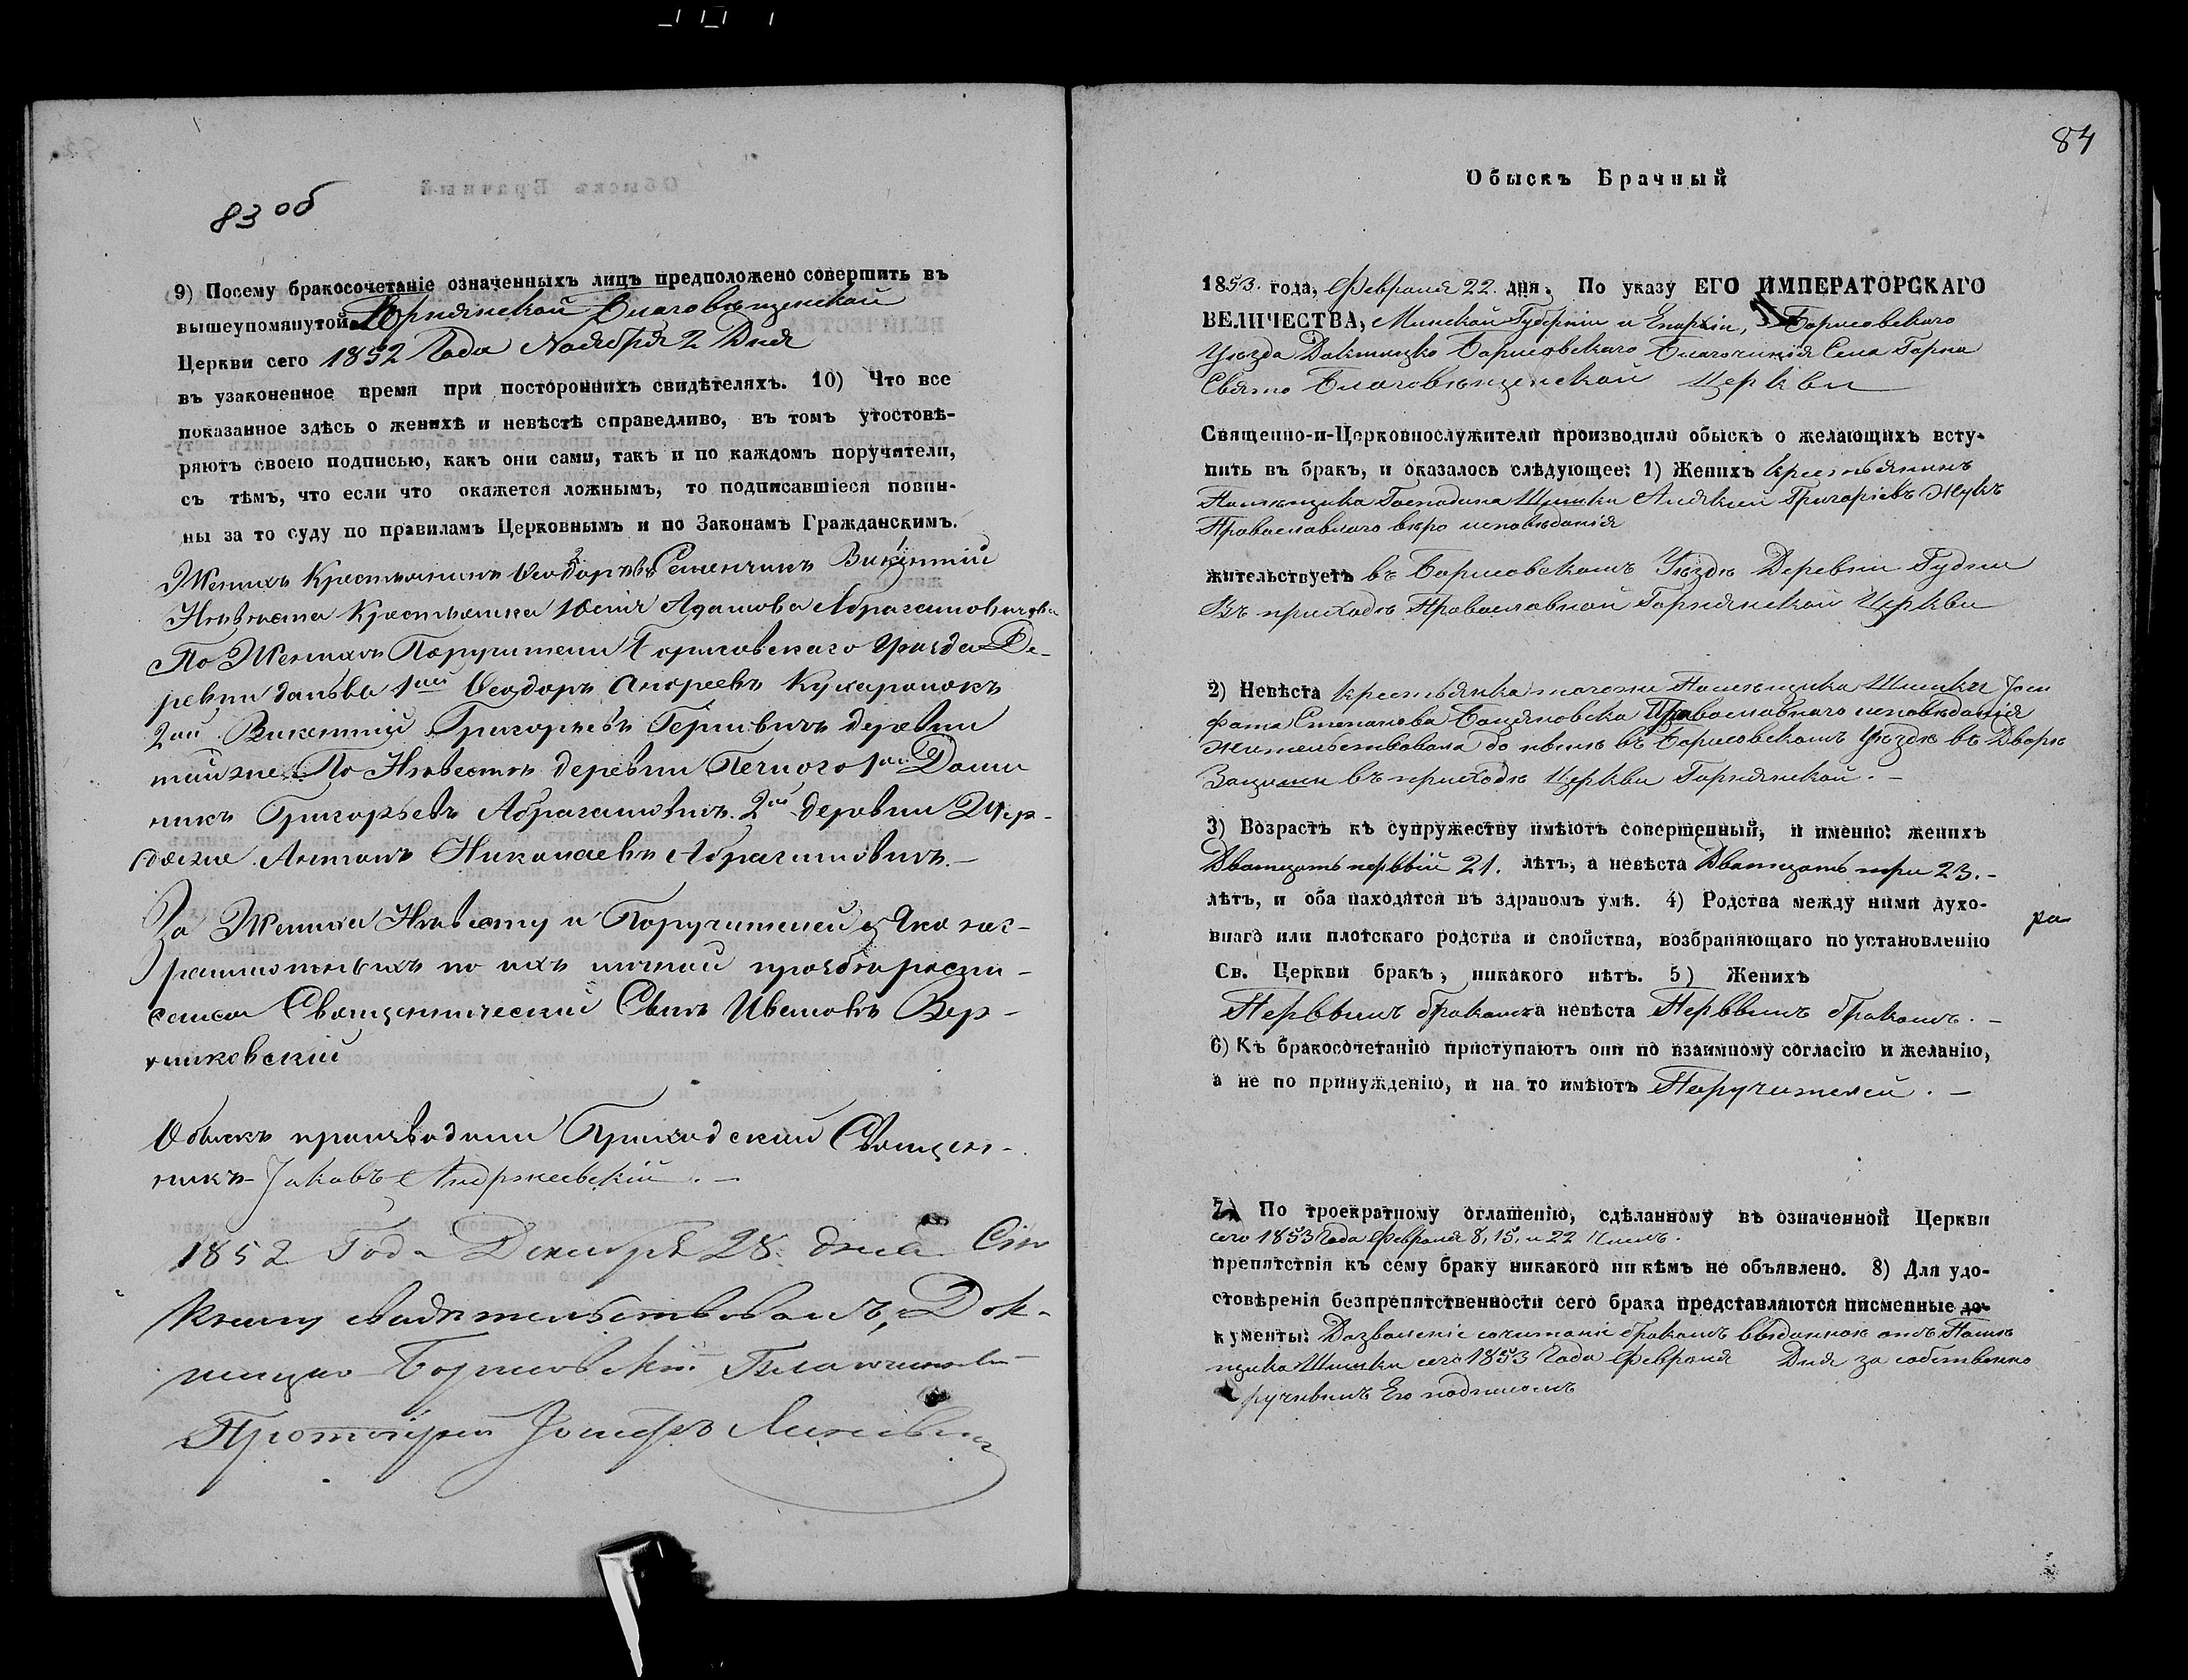 83 об
9) Посему бракосочетаніе означенныхъ лицъ предположено совершить въ
вышеупомянутой Горнянской Благовѣщенской
Церкви сего 1852 Года Ноября 2 Дня
въ узаконенное время при постороннихъ свидѣтеляхъ. 10) Что все
показанное здѣсь о женихѣ и невѣстѣ справедливо, въ томъ утостовѣ-
ряютъ своею подписью, какъ они сами, такъ и по каждомъ поручители,
съ тѣмъ, что если что окажется ложнымъ, то подписавшіеся повин-
ны за то суду по правиламъ Церковнымъ и по Законамъ Гражданскимъ.
Женихъ Крестьянинъ Викентій
Невѣста Крестьянка Юстія Адамова Абрагамовичова
По Женихѣ Поручители Борисовскаго Уѣзда Де-
ревни 1ый Ѳеодоръ Андреевъ Кухаронокъ
2ой Викентій Григорьевъ деревни
По Невестѣ деревни 1ый Доми
никъ Григорьевъ Абрагамовичъ. 2ой деревни
Антонъ Николаевъ Абрагимовичъ.-
За Жениха Невѣсту и Поручителей яко нег-
рамотныхъ по ихъ личной прозбѣ распи-
сался Священническій Сынъ Ивановъ Вер-
никовскій
Обыскъ производили Приходскій Священ-
никъ Іаковъ Андржеевскій. -
1852 Года Декабря 28. дня Сію
книгу свидѣтельствовалъ, Док-
шицко Борисовскій Благочинный
Протоіерей Іосифъ
84
Обыскъ Брачный
1853. года, Февраля 22. дня. По указу ЕГО ИМПЕРАТОРСКАГО
ВЕЛИЧЕСТВА, Минской Губерніи и Епархіи, Борисовскаго
Уѣзда Докшицко Борисовскаго Благочинія Села Горна
Свято Благовѣщенской Церкви
Священно-и-Церковнослужители производили обыскъ о желающихъ всту-
пить въ бракъ, и оказалось слѣдующее: 1) Женихъ Крестьянинъ
Помѣщика Господина Шишки Алѣксій Григоріевъ Жукъ
Православнаго вѣро исповѣданія
жительствуетъ въ Борисовскомъ Уѣздѣ Деревни Гудни
Въ приходѣ Православной Горнянской Церкви
2) Невѣста крестьянка тогожъ Помѣщика Шишки Іоси
фата Степанова Православнаго исповѣданія
Жительствовала до нынѣ въ Борисовскомъ Уѣздѣ въ Дворѣ
въ приходѣ Церкви Горнянской. -
3) Возрастъ къ супружеству имѣютъ совершенный, и именно: женихъ
Дватцать первый 21. лѣтъ, а невѣста Дватцать три 23. -
лѣтъ, и оба находятся въ здравомъ умѣ. 4) Родства между ними духо-
внаго или плотскаго родства и свойства, возбраняющаго по установленію
ра
Св. Церкви бракъ, никакого нѣтъ. 5) Женихъ
Перввымъ бракомъ а невѣста Перввымъ бракомъ. -
6) Къ бракосочетанію приступаютъ они по взаимному согласію и желанію,
а не по принужденію, и на то имѣютъ Поручителей. -
7) По троекратному оглашенію, сдѣланному въ означенной Церкви
сего 1853 Года Февраля 8, 15, и 22 Чиселъ.
препятствія къ сему браку никакого ни кѣмъ не объявлено. 8) Для удо-
стовѣренія безпрепятственности сего брака представляются писменные до-
кументы: Дозволеніе сочитаніе бракомъ выданное отъ Помѣ
щика Шишки сего 1853 Года Февраля Дня за собственно
ручнымъ Его подписомъ